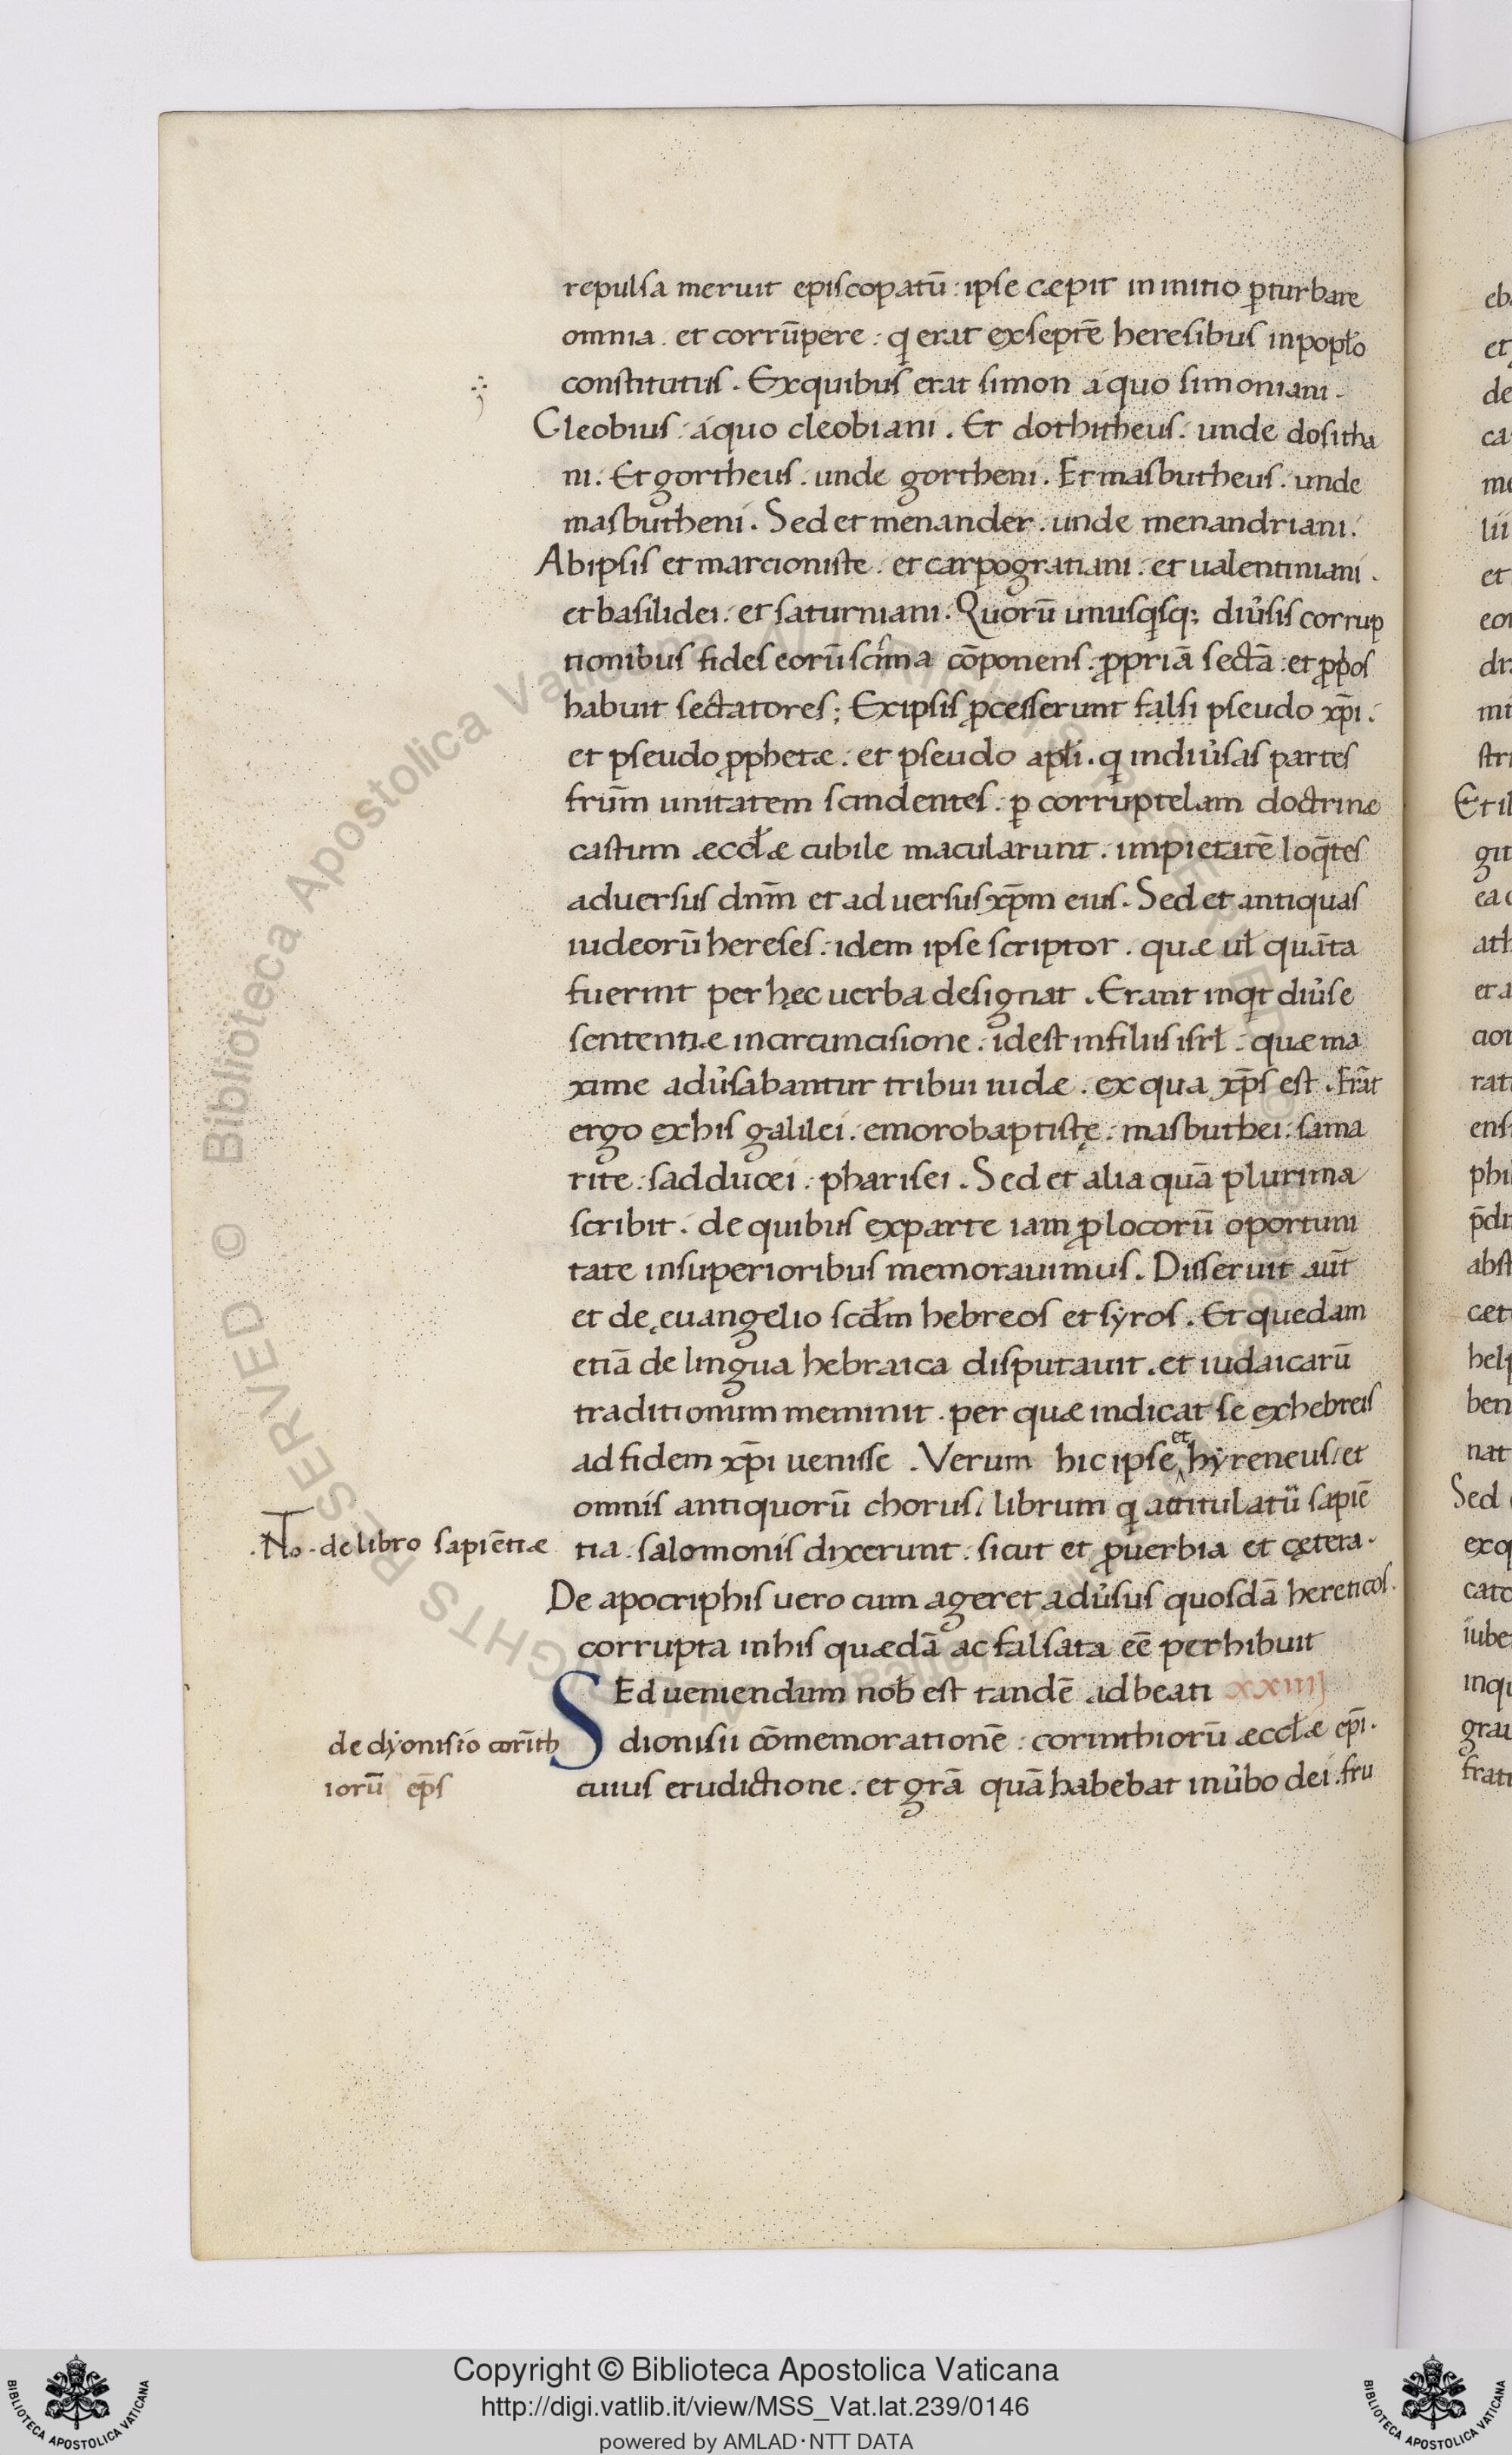 repulsa meruit episcopatū : ipse cæpit in initio ꝑturbare
omnia . et corrūpere : q erat ex septē heresibus in popło
constitutus . Ex quibus erat simon a quo simoniani .
Cleobius : a quo cleobiani . Et dothitheus . unde dositha
ni . Et gortheus . unde gortheni . Et masbutheus . unde
masbutheni . Sed et menander . unde menandriani .
Ab ipsis et marcioniste . et carpogratiani . et ualentiniani .
et basilidei . et saturniani . Quorū unusqsq; diu̓sis corrup
tionibus fides eorū cōponens . ꝓpriā sectā . et
habuit sectatores ; Ex ipsis ꝓcesserunt falsi pseudo xp̄i .
et pseudo ꝓphetæ . et pseudo apłi . q in diu̓sas partes
frūm unitatem scindentes . ꝑ corruptelam doctrinæ
castum æccłæ cubile macularunt . impietatē loq̄tes
aduersus dn̄m et aduersus xp̄m eius . Sed et antiquas
iudeorū hereses . idem ipse scriptor . quæ ul quāta
fuerint per hęc uerba designat . Erant inqt diu̓se
sententiæ in circuncisione . idest in filiis isrł . quæ ma
xime adu̓sabantur tribui iudæ . ex qua xp̄s est . Erāt
ergo ex his galilei . emorobaptistę . masbuthei . sama
rite . sadducei . pharisei . Sed et alia quā plurima
scribit . de quibus ex parte iam ꝓ locorū oportuni
tate in superioribus memorauimus . Disseruit aūt
et de euangelio scđm hebreos et syros . Et quedam
etiā de lingua hebraica disputauit . et iudaicarū
traditionum meminit . per quæ indicat se ex hebreis
ad fidem xp̄i uenisse . Verum hic ipse et hyreneus . et
omnis antiquorū chorus . librum q attitulatū sapiē
.No. de libro sapiētiæ
tia . salomonis dixerunt . sicut et ꝓuerbia et cętera .
De apocriphis uero cum ageret adu̓sus quosdā hereticos .
corrupta in his quædā ac falsata eē perhibuit
SEd ueniendum nob est tandē ad beati xxiiij
de dyonisio corīth
iorū ep̄s
dionisii cōmemorationē : corinthiorū æccłæ ep̄i .
cuius eruditione . et grā quā habebat in u̓bo dei . fru
eb
et
de
ca
me
lii
et
eor
dr
mi
stri
Et il
git
ea c
ath
er a
cior
rati
ens
phi
p̄di
abst
cæt
help
ben
nat
Sed
exq
cate
iube
inqu
grau
frat
© Biblioteca Apostolica Vaticana ALL RIGHTS RESERVED
Copyright © Biblioteca Apostolica Vaticana
http://digi.vatlib.it/view/MSS_Vat.lat.239/0146
powered by AMLAD·NTT DATA
BIBLIOTECA APOSTOLICA VATICANA
BIBLIOTECA APOSTOLICA VATICANA